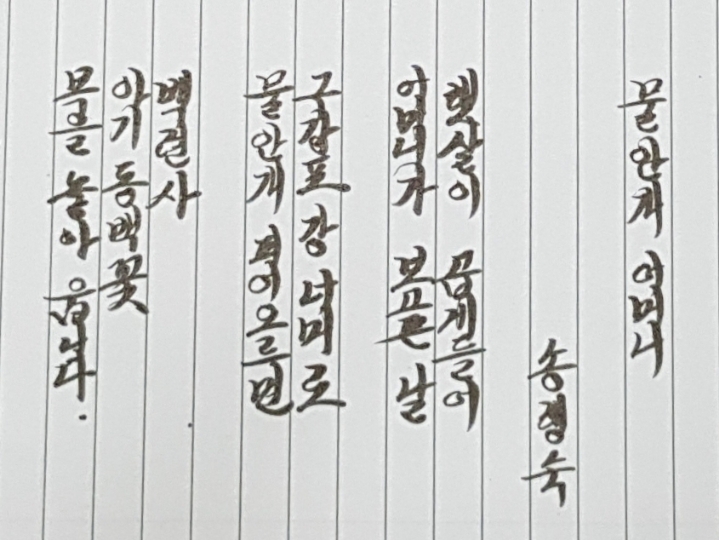 물안개 어머니
송영숙
햇살이 곱게 들어
어머니가 보고픈 날
구강포 강 너머로
물안개 피어오르면
백련사
아기 동백꽃
몸을 놓아 웁니다.